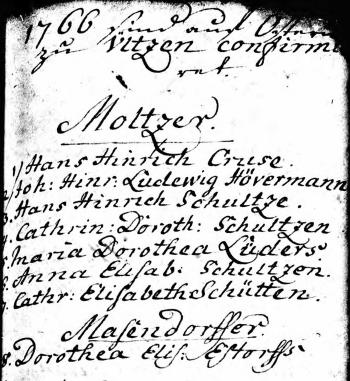 1766 sind auf Ostern
zu Vitzen confirmi
ret.
Moltzer.
1/ Hans Hinrich Cruse.
2/ Joh: Hinr: Ludewig Hövermann
3. Hans Hinrich Schultze.
4. Cathrin: Doroth: Schultzen
5. Maria Dorothea Lüders
6. Anna Elisab: Schultzen.
7. Cathr: Elisabeth Schütten.
Masendorffer.
8. Dorothea Elis: Estorffs